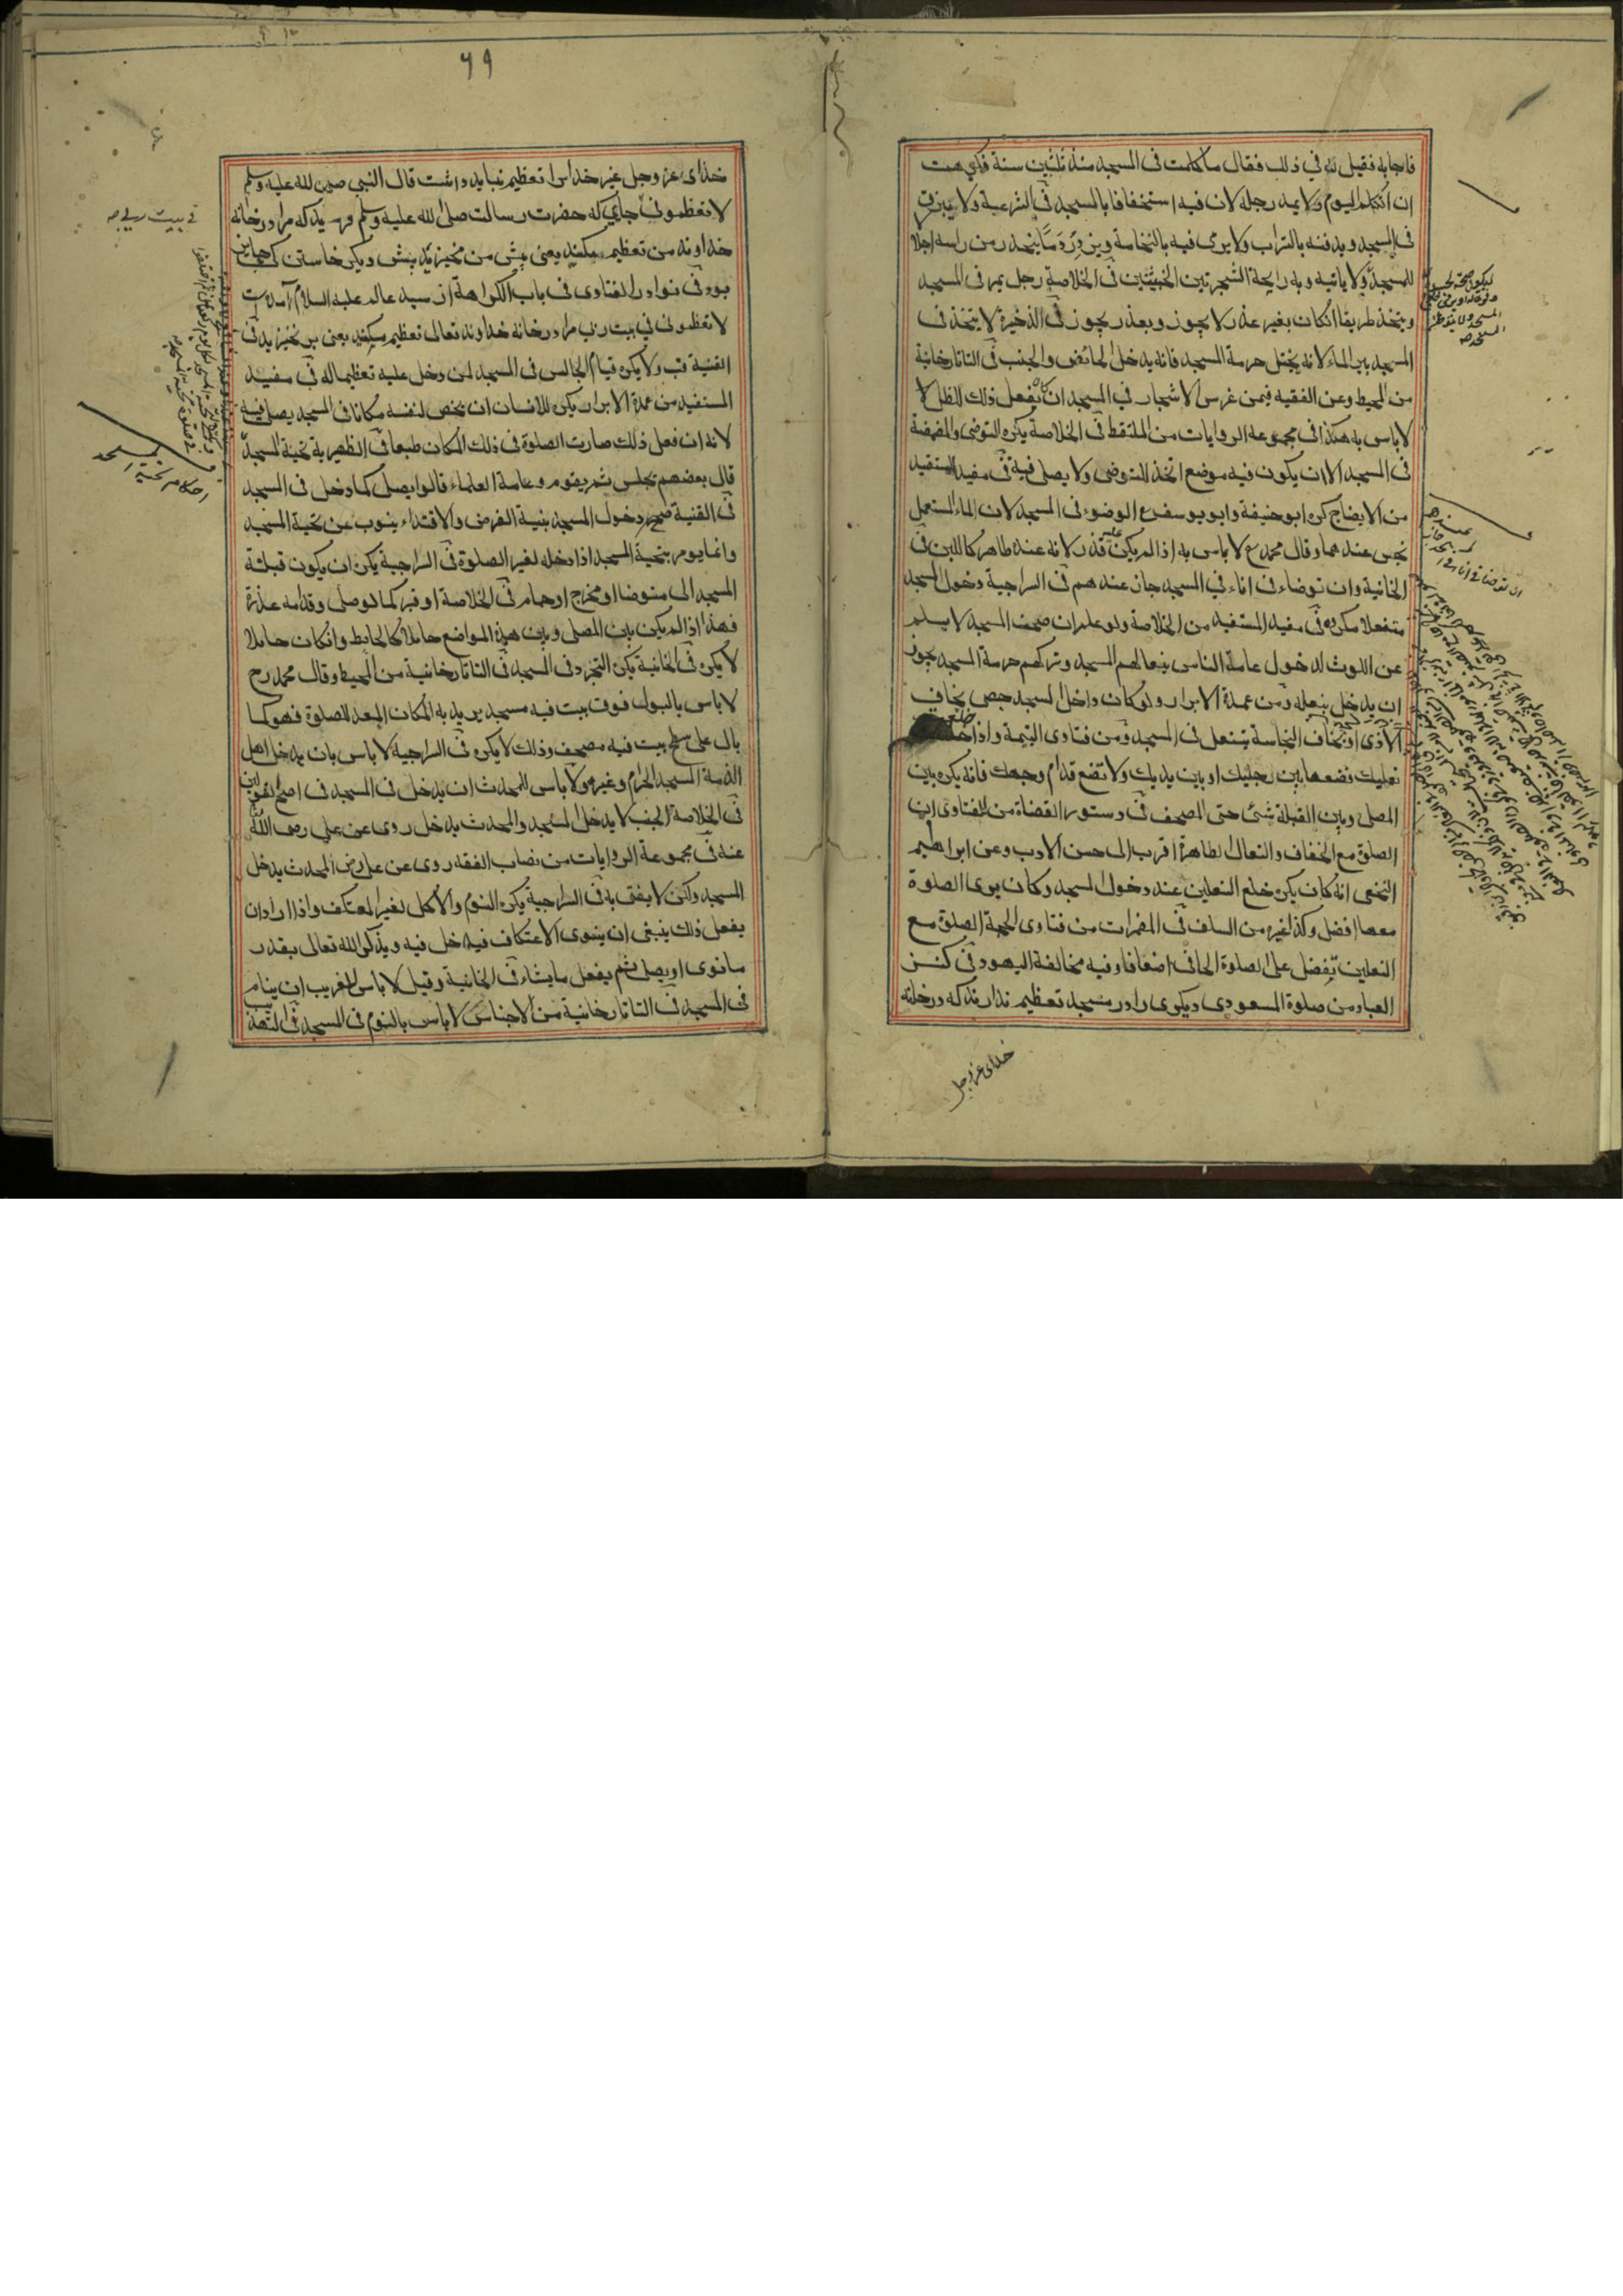 فاجابه فقيل له في ذلك فقال ما تكلمت في المسجد منذ ثلثين سنة فكرهت
ان اتكلم اليوم ولا يمد رجله لان فيه استخفافا بالمسجد في الشرعية ولا يبزق
في المسجد ويدفنه بالتراب ولا يرمى فيه بالنخامة ما ينحدر من راسه اجلا
للمسجد ولا ياتيه وبه رايحة الشجرتين الخبيثتين في الخلاصة رجل يمر في المسجد
ويتخذ طريقا انكان بغير عذر لا يجوز وبعذر يجوز في الذخيرة لا يتخذ في
المسجد بير الماء لانه يختل حرمة المسجد فانه يدخل الحائض والجنب في التاتارخانية
من المحيط وعن الفقيه فيمن غرس الاشجار في المسجد ان كان يفعل ذلك للظل لا
لاباس به هكذا في مجموعه الروايات من الملتقط في الخلاصة يكره التوضى والمضمضة
في المسجد الا ان يكون فيه موضع اتخذ للتوضى ولا يصلى فيه في مفيد المستفيد
من الايضاح كره ابو حنيفة وابو يوسف رح الوضوء في المسجد لان الماء المستعمل
نجس عندهما وقال محمد رح لا باس به اذا لم يكن عليه قذر لانه عنده طاهر كاللبن في
الخانية وان توضاء في اناء في المسجد جاز عندهم في السراجية دخول المسجد
متنعلا مكروه في مفيد المستفيد من الخلاصة ولو علم ان صحف المسجد لا يسلم
عن اللوث لدخول عامة الناس بنعالهم المسجد وتركهم حرمة المسجد يجوز
ان يدخل بنعله من عمدة الابرار ولو كان داخل المسجد جص يخاف
الاذى او يخاف النجاسة يتنعل في المسجد ومن فتاوى اليتيمة واذا خلع
نعليك فضعها بين رجليك او بين يديك ولا تضع قدام وجهك فانه يكره بين
المصلى وبين القبلة شئ حتى المصحف في دستور القضاة من الفتاوى ان
الصلوة مع الخفاف والنعال الطاهرة اقرب الى حسن الادب وعن ابراهيم
النخعى انه كان يكره خلع النعلين عند دخول المسجد وكان يرى الصلوة
معها افضل وكذا غيره من السلف في المضمرات من فتاوى الحجة الصلوة مع
النعلين تفضل على صلوة الحافى اضعافا وفيه مخالفة اليهود في كنز
العباد من صلوة المسعودى ديكرى را در مسجد تعظيم ندارند كه در خانه
خداى عزوجل
ان توضا في اناء في
٦٩
خداى عز وجل غير خدا را تعظيم نبايد داشت قال النبي صلى الله عليه وسلم
لا تعظمونى جايى كه حضرت رسالت صلى الله عليه وسلم فرمود كه مرا در خانه
خداوند من تعظيم مكنيد يعنى پيش من مخيزيد پيش ديكر خاستن كى
بود في نوادر الفتاوى في باب الكراهة از سيد عالم عليه السلام آمده است
لا تعظمونى في بيت ربى مرا در خانه خداوند تعالى تعظيم مكنيد يعنى بر مخيزيد في
القنية قب ولا يكره قيام الجالس في المسجد لمن دخل عليه تعظيما له في مفيد
المستفيد من عمدة الابرار يكره للانسان ان يخص لنفسه مكانا في المسجد يصلى فيه
لانه ان فعل ذلك صارت الصلوة في ذلك المكان طبعا في الظهيرية تحية المسجد
قال بعضهم يجلس ثم يقوم وعامة العلماء قالوا يصلى كما دخل في المسجد
في القنية صح دخول المسجد بنية الفرض والاقتداء ينوب عن تحية المسجد
وانما يومر بتحية المسجد اذا دخله لغير الصلوة في السراجية يكره ان يكون قبلة
المسجد الى متوضا او مخرج او حمام في الخلاصة او قبر كما لو صلى وقدامه عذرة
فهذا اذا لم يكن بين المصلى وبين هذه المواضع حايلا كالحايط وانكان حايلا
لا يكره في الخانية يكره في المسجد في التاتارخانية من المحيط وقال محمد رح
لا باس بالبول فوق بيت فيه مسجد يريد به المكان المعد للصلوة فهو كما
بال على سطح بيت فيه مصحف وذلك لا يكره في السراجية لا باس بان يدخل اهل
الذمة المسجد الحرام وغيره ولا باس للمحدث ان يدخل في المسجد في اصح القولين
في الخلاصة الجنب لا يدخل المسجد والمحدث يدخل روى عن على رضى الله
عنه في مجموعة الروايات من نصاب الفقه روى عن على رض المحدث يدخل
المسجد ولكن لا يفتى به في السراجية يكره النوم والاكل لغير المعتكف واذا اراد ان
يفعل ذلك ينبغى ان ينوى الاعتكاف فيدخل فيه ويذكر الله تعالى بقدر
ما نوى او يصلى ثم يفعل ما يشاء في الخانية وقيل لا باس للغريب ان ينام
في المسجد في التاتارخانية من الاجناس لا باس بالنوم في المسجد في
في بيت ربى صح
احكام تحية المسجد